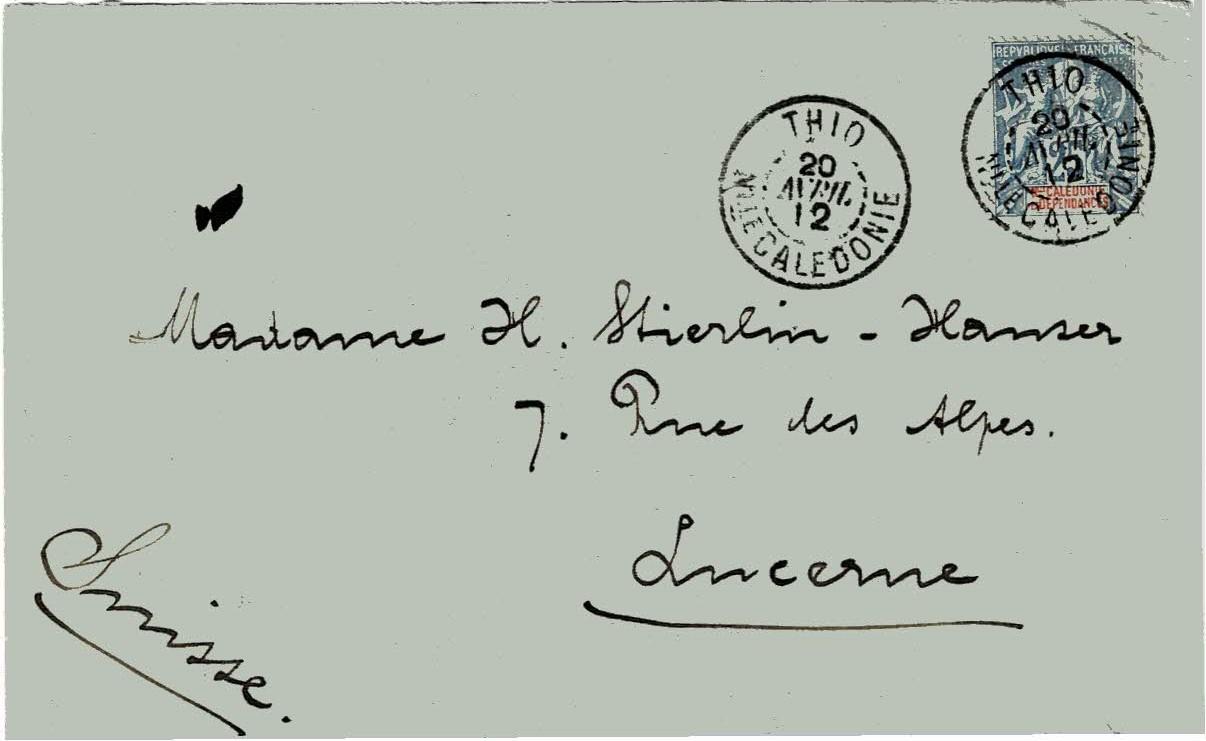 REPVBLIQVE FRANÇAISE
THIO
20
AVRIL
12
Nlle CALEDONIE
THIO
20
AVRIL
12
Nlle CALEDONIE
Nlle CALÉDONIE
DÉPENDANCES
Madame H. Stierlin - Hauser
7. Rue des Alpes.
Lucerne
Suisse.